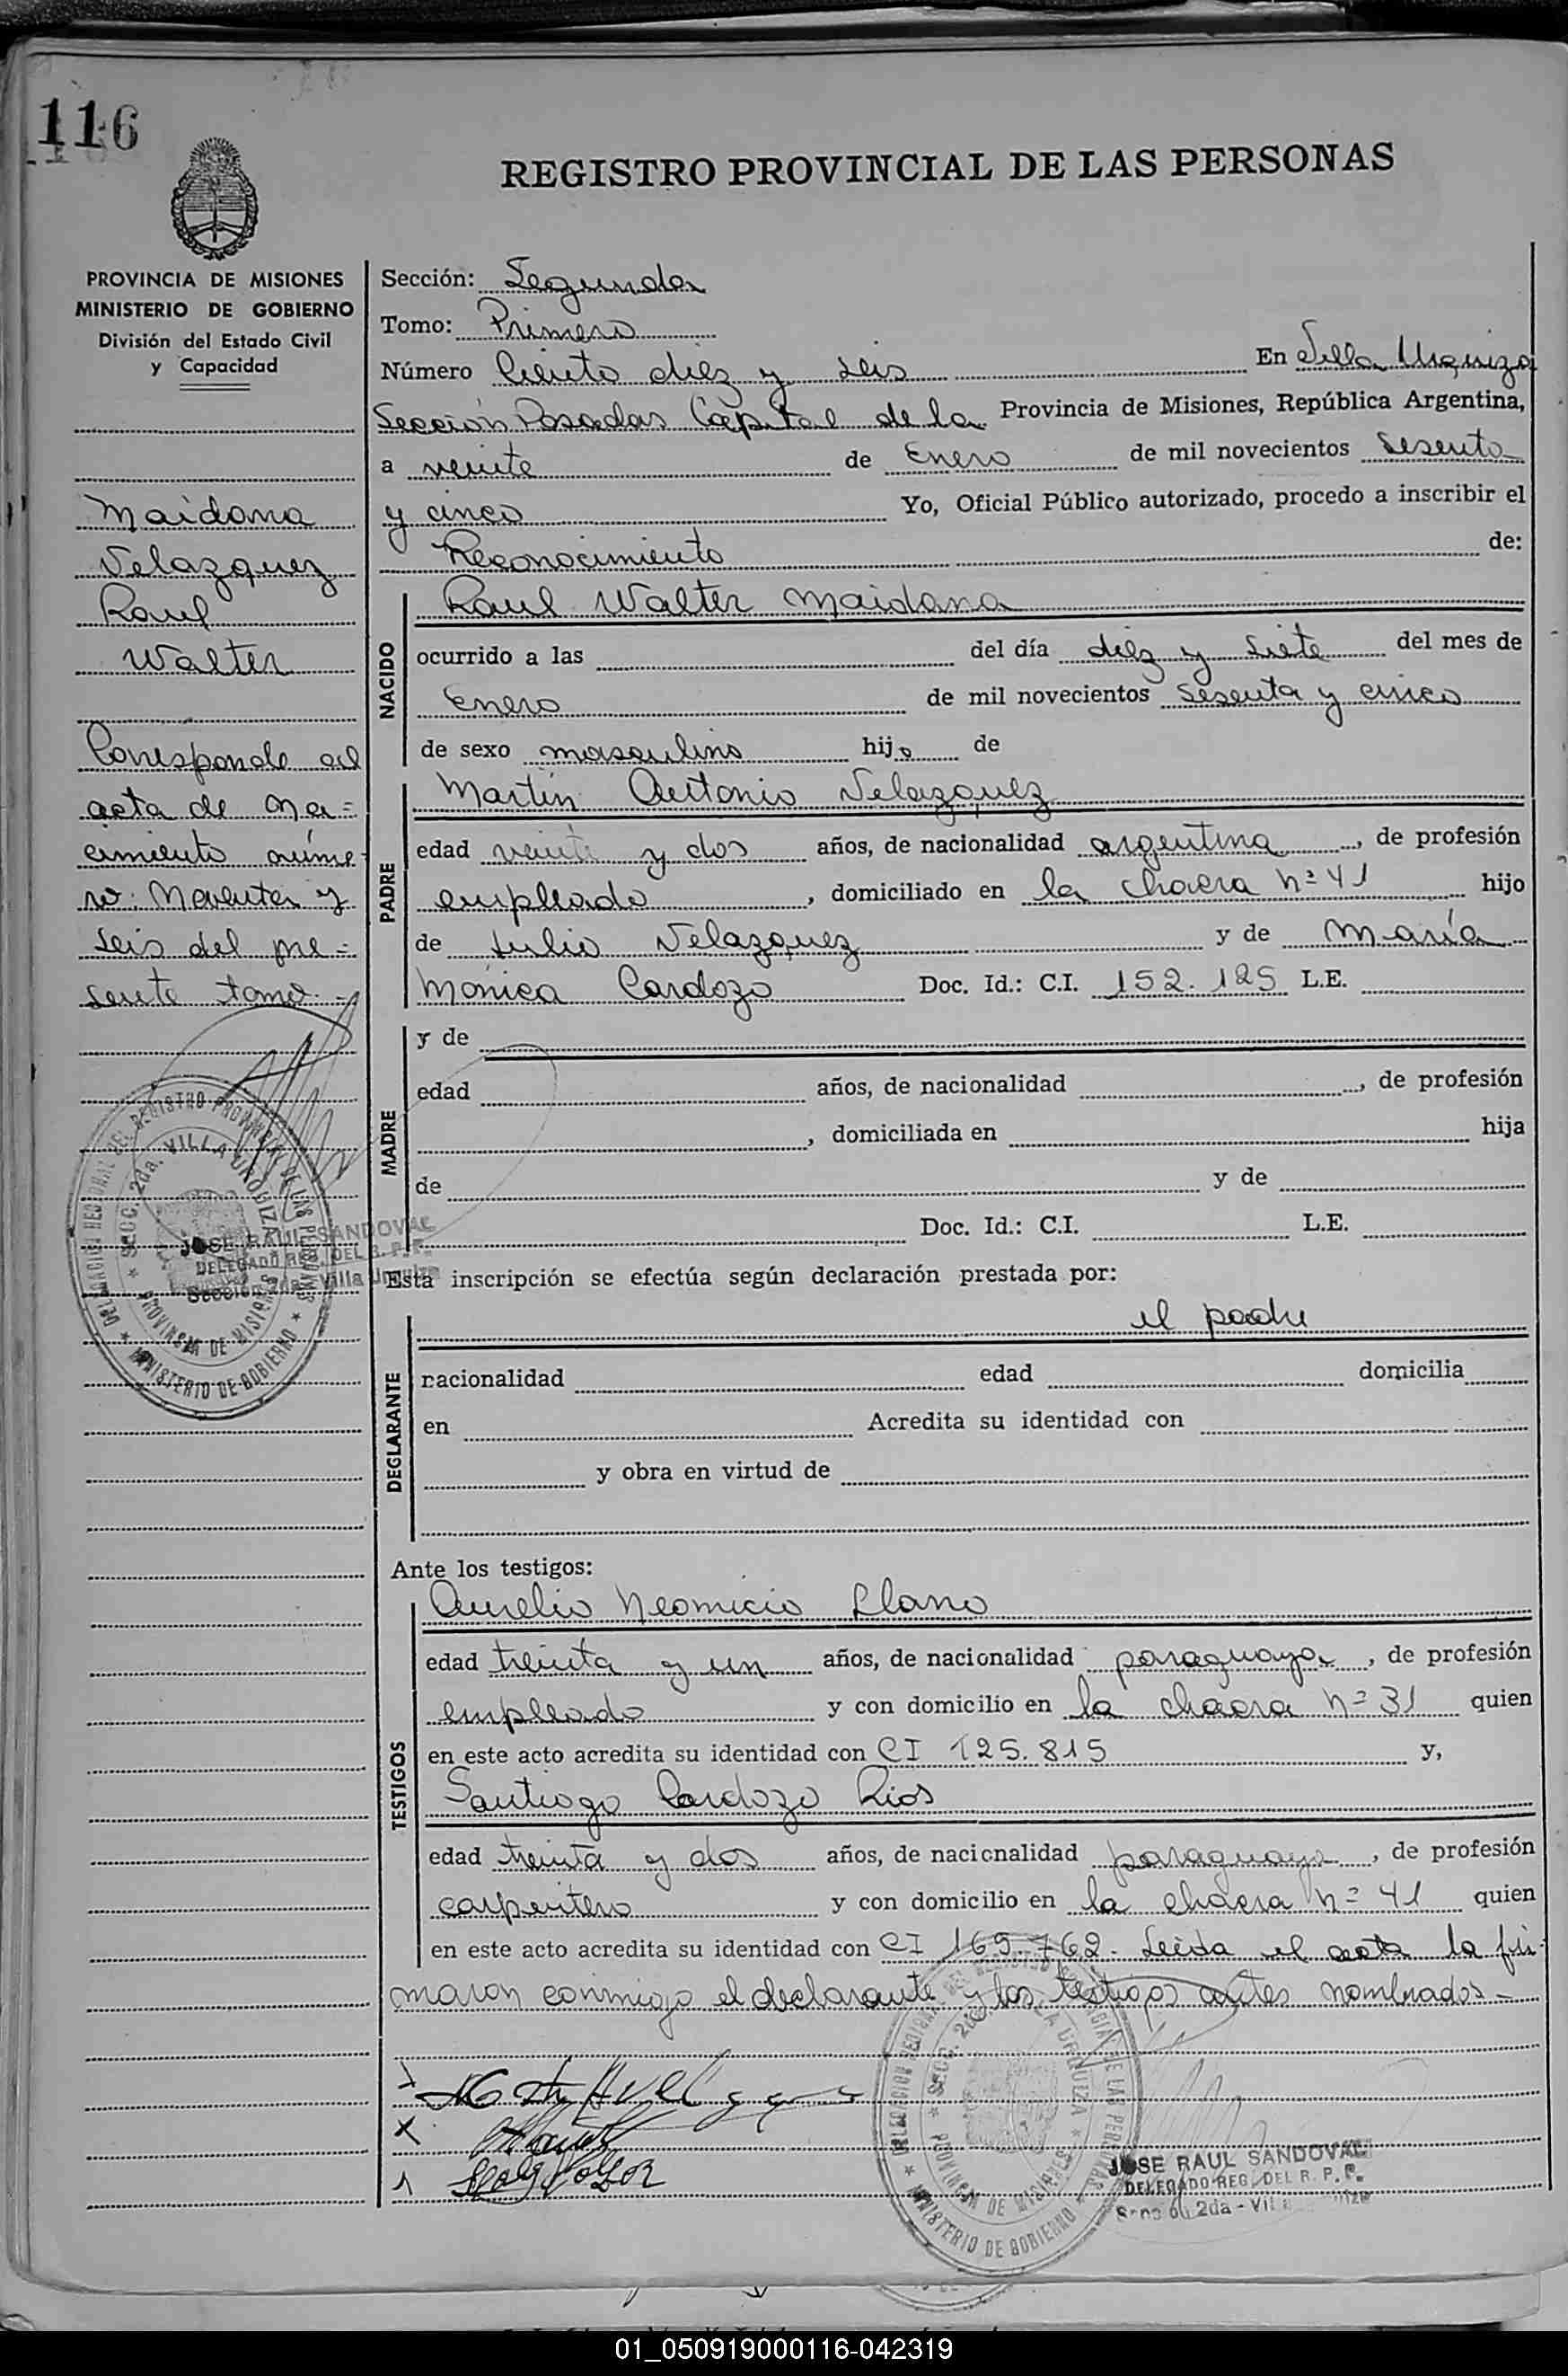 116
REGISTRO PROVINCIAL DE LAS PERSONAS
PROVINCIA DE MISIONES
MINISTERIO DE GOBIERNO
División del Estado Civil
y Capacidad
Maidana
Velazquez
Raul
Walter
Corresponde al
acta de na=
cimiento núme-
ro: Noventa y
seis del pre=
sente tomo.-
DELEGACION REGIONAL DEL REGISTRO PROVINCIAL DE LAS PERSONAS
SECC. 2da. VILLA URQUIZA
PROVINCIA DE MISIONES
MINISTERIO DE GOBIERNO
JOSE RAUL SANDOVAL
DELEGADO REG. DEL R. P. P.
Sección 2da - Villa Urquiza
Sección: Segunda
Tomo: Primero
Número Ciento diez y seis En Villa Urquiza
Sección Posadas Capital de la Provincia de Misiones, República Argentina,
a veinte de Enero de mil novecientos sesenta
y cinco Yo, Oficial Público autorizado, procedo a inscribir el
Reconocimiento de:
NACIDO
Raul Walter Maidana
ocurrido a las del día diez y siete del mes de
Enero de mil novecientos sesenta y cinco
de sexo masculino hijo de
PADRE
Martín Antonio Velazquez
edad veinte y dos años, de nacionalidad argentina, de profesión
empleado, domiciliado en la chacra nº 41 hijo
de Julio Velazquez y de María
Mónica Cardozo Doc. Id.: C.I. 152.125 L.E.
MADRE
y de
edad años, de nacionalidad , de profesión
, domiciliada en hija
de y de
Doc. Id.: C.I. L.E.
Esta inscripción se efectúa según declaración prestada por:
DECLARANTE
el padre
nacionalidad edad domicilia
en Acredita su identidad con
y obra en virtud de
Ante los testigos:
TESTIGOS
Aurelio Neomicio Llano
edad treinta y un años, de nacionalidad paraguaya, de profesión
empleado y con domicilio en la chacra nº 31 quien
en este acto acredita su identidad con CI 125.815 y,
Santiago Cardozo Rios
edad treinta y dos años, de nacionalidad paraguaya, de profesión
carpintero y con domicilio en la chacra nº 41 quien
en este acto acredita su identidad con CI 169.762. Leida el acta la fir-
maron conmigo el declarante y los testigos antes nombrados-
DELEGACION REGIONAL DEL REGISTRO PROVINCIAL DE LAS PERSONAS
SECC. 2da. VILLA URQUIZA
PROVINCIA DE MISIONES
MINISTERIO DE GOBIERNO
JOSE RAUL SANDOVAL
DELEGADO REG. DEL R. P. P.
Sección 2da - Villa Urquiza
01_050919000116-042319